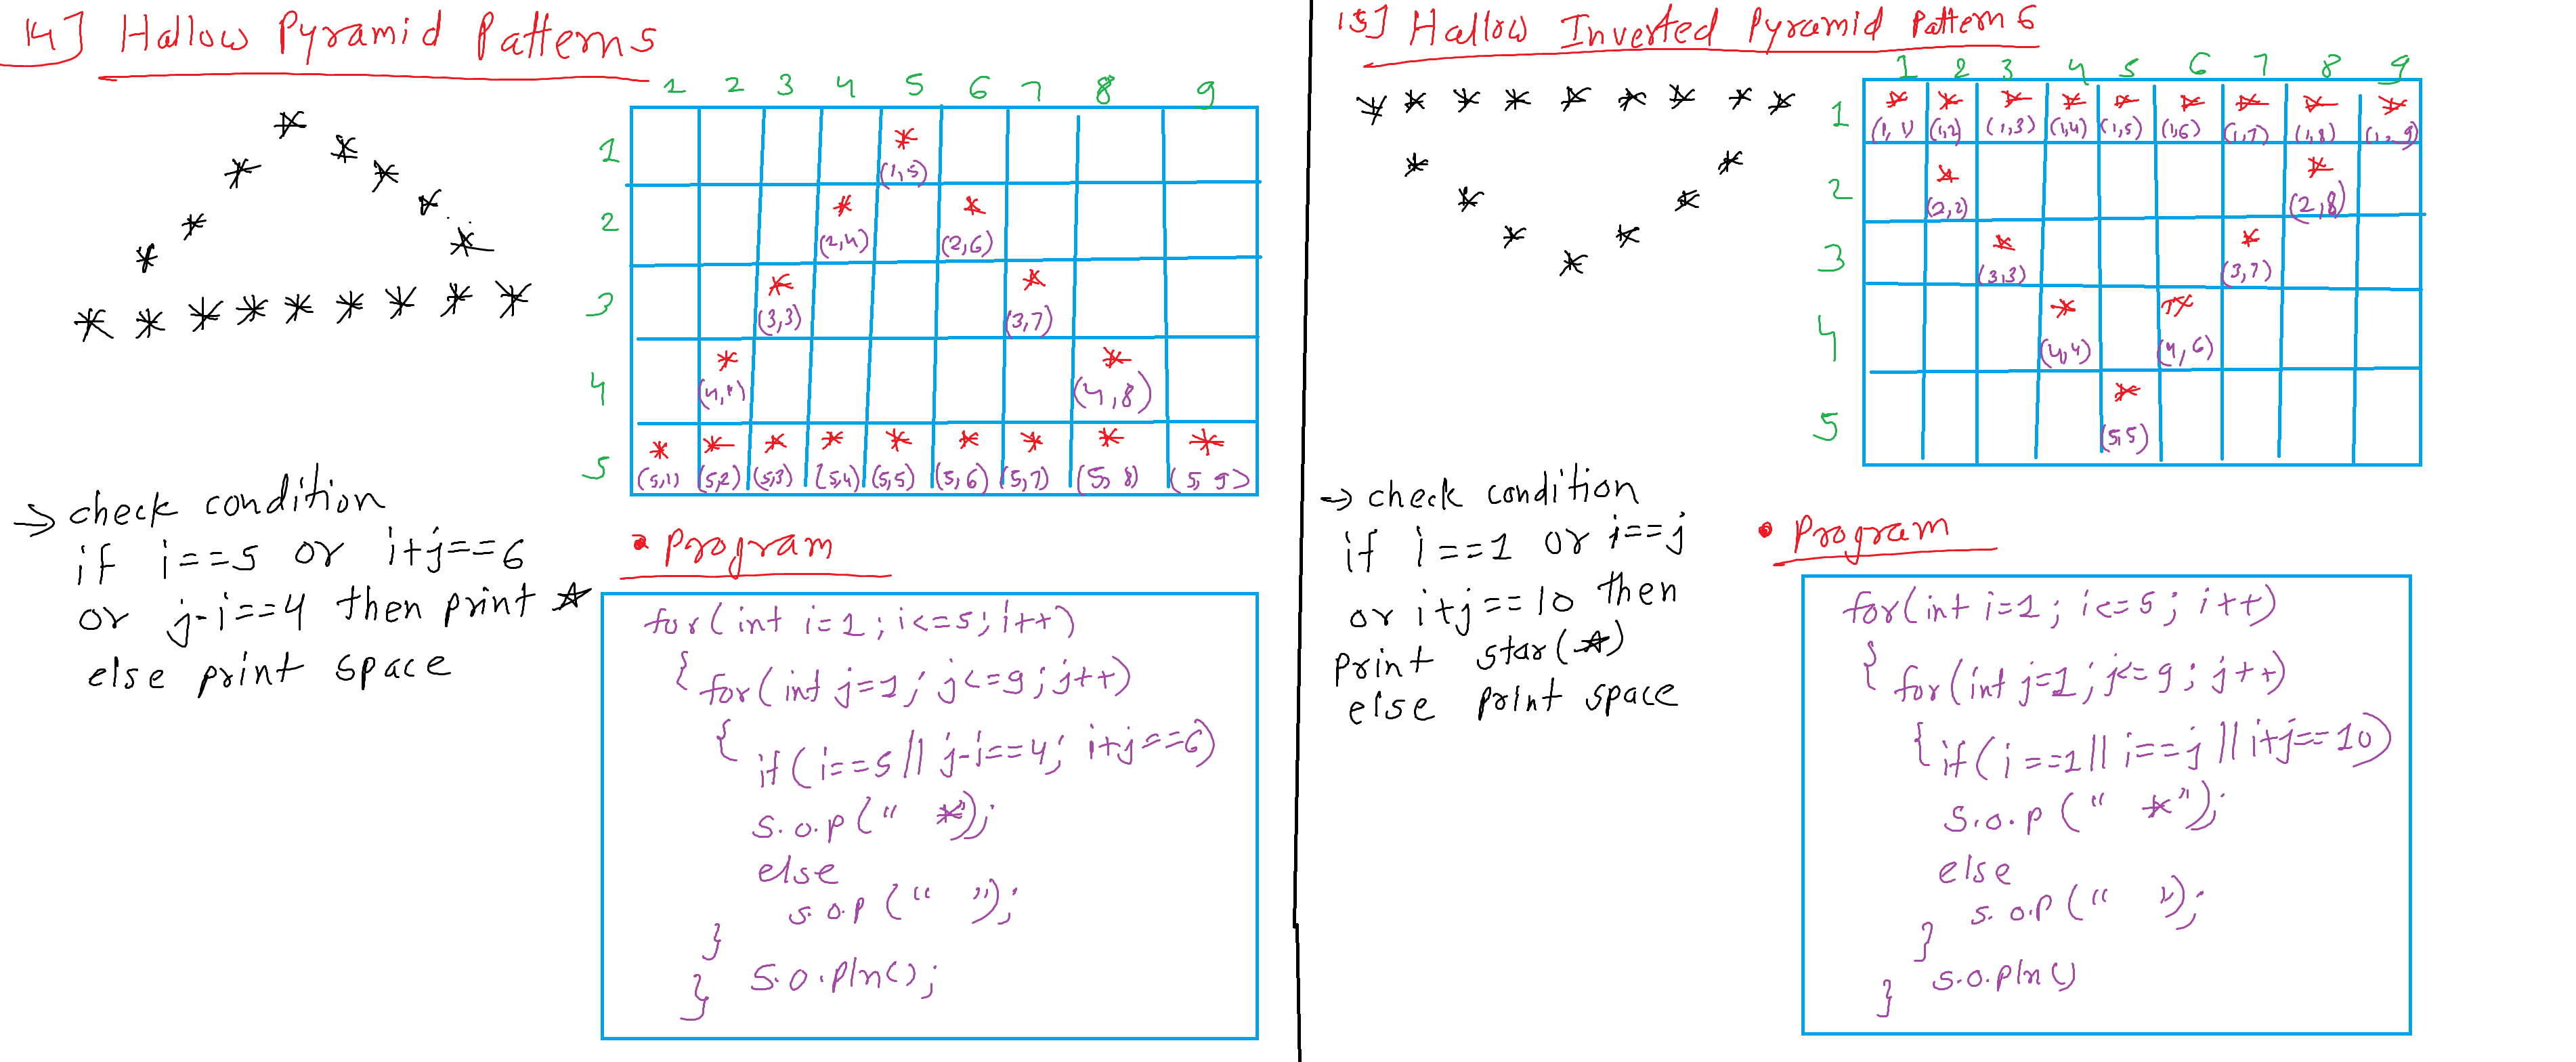 14] Hallow Pyramid Patterns
1 2 3 4 5 6 7 8 9
*
* *
* *
* *
* * * * * * * * *
1 *
(1,5)
2 * *
(2,4) (2,6)
3 * *
(3,3) (3,7)
4 * *
(4,8)
5 * * * * * * * * *
(5,1) (5,2) (5,3) (5,4) (5,5) (5,6) (5,7) (5,8) (5,9)
→ check condition
if i==5 or i+j==6
or j-i==4 then print *
else print space
• Program
for(int i=1; i<=5; i++)
{ for(int j=1; j<=9; j++)
{ if(i==5 || j-i==4; i+j==6)
S.o.p(" *");
else
S.o.p(" ");
}
S.o.pln();
}
15] Hallow Inverted Pyramid Pattern 6
1 2 3 4 5 6 7 8 9
* * * * * * * * *
* *
* *
* *
*
1 * * * * * * * * *
(1,1) (1,2) (1,3) (1,4) (1,5) (1,6) (1,7) (1,8) (1,9)
2 * *
(2,2) (2,8)
3 * *
(3,3) (3,7)
4 * *
(4,4) (4,6)
5 *
(5,5)
→ check condition
if i==1 or i==j
or i+j==10 then
print star(*)
else print space
• Program
for(int i=1; i<=5; i++)
{ for(int j=1; j<=9; j++)
{ if(i==1 || i==j || i+j==10)
S.o.p(" *");
else
S.o.p(" ");
}
S.o.pln()
}